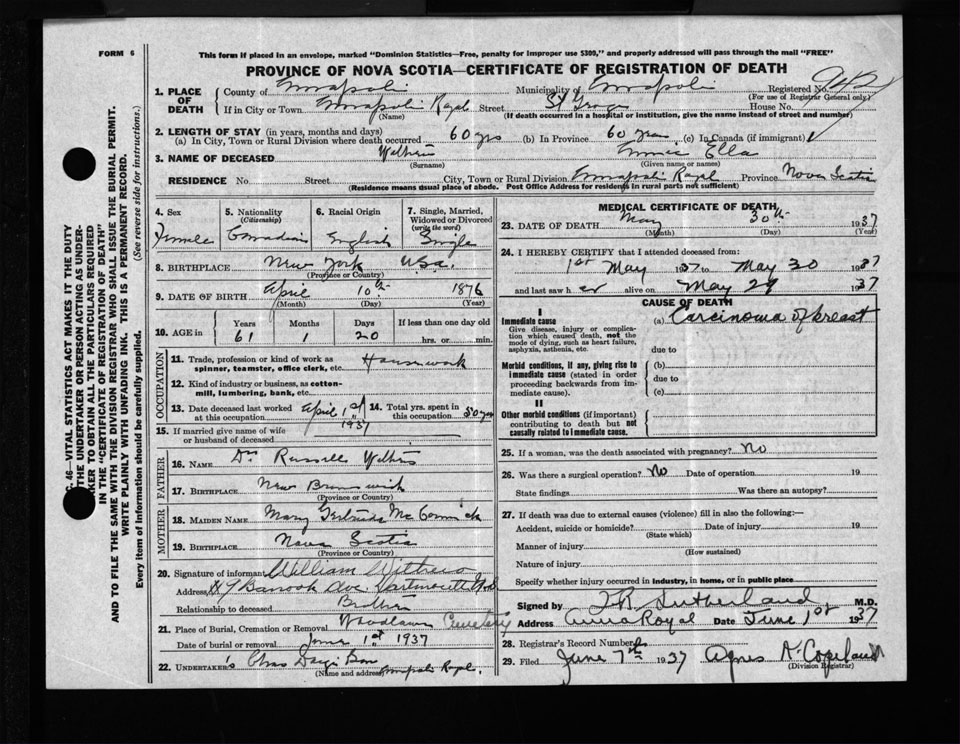 FORM 6
This form if placed in an envelope, marked "Dominion Statistics—Free, penalty for improper use $300," and properly addressed will pass through the mail "FREE"
PROVINCE OF NOVA SCOTIA—CERTIFICATE OF REGISTRATION OF DEATH
1. PLACE OF DEATH
County of Annapolis Municipality of Annapolis Registered No.
(For use of Registrar General only)
If in City or Town Annapolis Royal Street St George House No.
(Name) (If death occurred in a hospital or institution, give the name instead of street and number)
2. LENGTH OF STAY (in years, months and days)
(a) In City, Town or Rural Division where death occurred 60 yrs (b) In Province 60 years (c) In Canada (if immigrant)
3. NAME OF DECEASED Withers Ella
(Surname) (Given name or names)
RESIDENCE No. Street City, Town or Rural Division Annapolis Royal Province Nova Scotia
(Residence means usual place of abode. Post Office Address for residents in rural parts not sufficient)
4. Sex Female
5. Nationality (Citizenship) Canadian
6. Racial Origin English
7. Single, Married, Widowed or Divorced (write the word) Single
8. BIRTHPLACE New York U.S.A.
(Province or Country)
9. DATE OF BIRTH April 10th 1876
(Month) (Day) (Year)
10. AGE in Years 61 Months 1 Days 20 If less than one day old hrs. or min.
OCCUPATION
11. Trade, profession or kind of work as spinner, teamster, office clerk, etc. Housework
12. Kind of industry or business, as cotton-mill, lumbering, bank, etc.
13. Date deceased last worked at this occupation April 1st 1937
14. Total yrs. spent in this occupation 50 yrs
15. If married give name of wife or husband of deceased
FATHER
16. NAME Dr Russell Withers
17. BIRTHPLACE New Brunswick
(Province or Country)
MOTHER
18. MAIDEN NAME Mary Gertrude McCormick
19. BIRTHPLACE Nova Scotia
(Province or Country)
20. Signature of informant William Withers
Address Ave Dartmouth N.S.
Relationship to deceased Brother
21. Place of Burial, Cremation or Removal Woodlawn Cemetery
Date of burial or removal June 1st 1937
22. UNDERTAKER's Chas Son
(Name and address) Annapolis Royal.
MEDICAL CERTIFICATE OF DEATH
23. DATE OF DEATH May 30th 1937
(Month) (Day) (Year)
24. I HEREBY CERTIFY that I attended deceased from:
1st May 1937 to May 30 1937
and last saw her alive on May 29 1937
CAUSE OF DEATH
I
Immediate cause (a) Carcinoma of breast
Give disease, injury or complication which caused death, not the mode of dying, such as heart failure, asphyxia, asthenia, etc.
due to
Morbid conditions, if any, giving rise to immediate cause (stated in order proceeding backwards from immediate cause).
(b)
due to
(c)
II
Other morbid conditions (if important) contributing to death but not causally related to immediate cause.
25. If a woman, was the death associated with pregnancy? No
26. Was there a surgical operation? No Date of operation 19
State findings Was there an autopsy?
27. If death was due to external causes (violence) fill in also the following:—
Accident, suicide or homicide? Date of injury 19
(State which)
Manner of injury
(How sustained)
Nature of injury
Specify whether injury occurred in industry, in home, or in public place
Signed by Sutherland M.D.
Address Anna Royal Date June 1st 1937
28. Registrar's Record Number
29. Filed June 7th 1937 Agnes A. Copeland
(Division Registrar)
C. 46—VITAL STATISTICS ACT MAKES IT THE DUTY
THE UNDERTAKER OR PERSON ACTING AS UNDER-
KER TO OBTAIN ALL THE PARTICULARS REQUIRED
IN THE "CERTIFICATE OF REGISTRATION OF DEATH"
AND TO FILE THE SAME WITH THE DIVISION REGISTRAR WHO SHALL ISSUE THE BURIAL PERMIT.
WRITE PLAINLY WITH UNFADING INK. THIS IS A PERMANENT RECORD.
Every item of information should be carefully supplied. (See reverse side for instructions.)